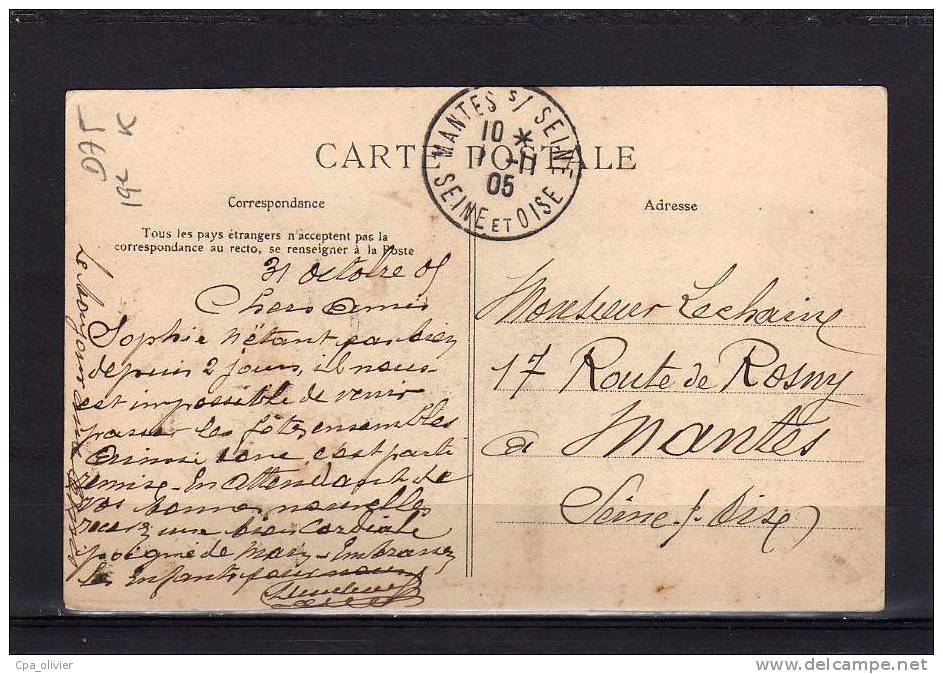 D75
19c K
MANTES s/ SEINE
10 *
1 -11
05
SEINE ET OISE
CARTE POSTALE
Correspondance
Adresse
Tous les pays étrangers n'acceptent pas la
correspondance au recto, se renseigner à la Poste
31 Octobre 05
Chers Amis
Sophie n'étant pas bien
depuis 2 jours, il nous
est impossible de venir
passer les fêtes ensembles
Ainsi donc c'est partie
remise - En attendant de
vos bonnes nouvelles
recevez une bien Cordiale
poignée de Main - Embrassez
les Enfants pour nous
Monsieur Lechaine
17 Route de Rosny
à Mantes
Seine & Oise
Cpa_olivier
delcampe.net